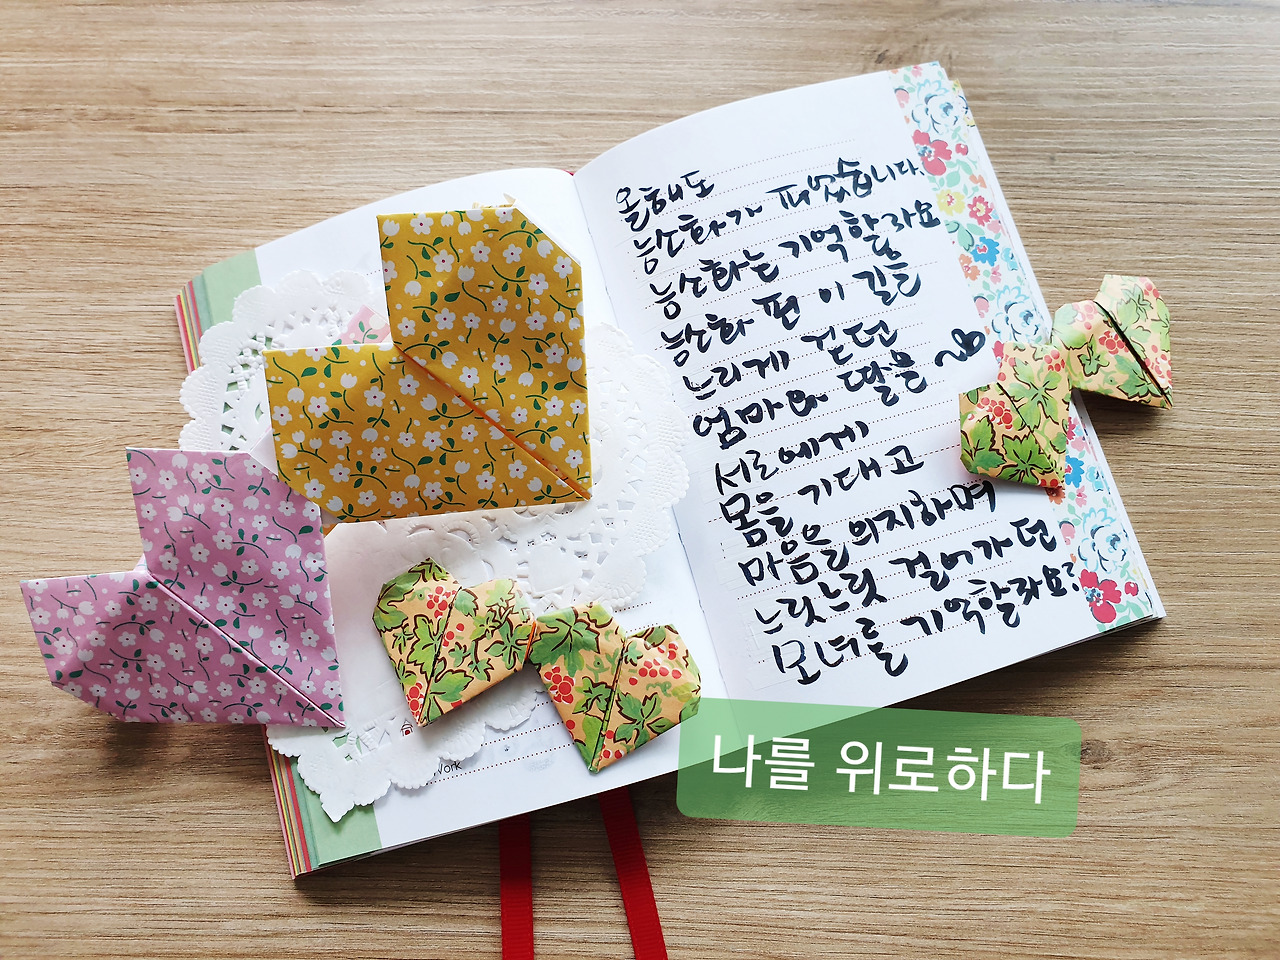 올해도
능소화가 피었습니다.
능소화는 기억할라요
능소화 핀 이 길을
느리게 걷던
엄마와 딸을
서로에게
몸을 기대고
마음을 의지하며
느릿느릿 걸어가던
모녀를 기억할라요?
work
나를 위로하다